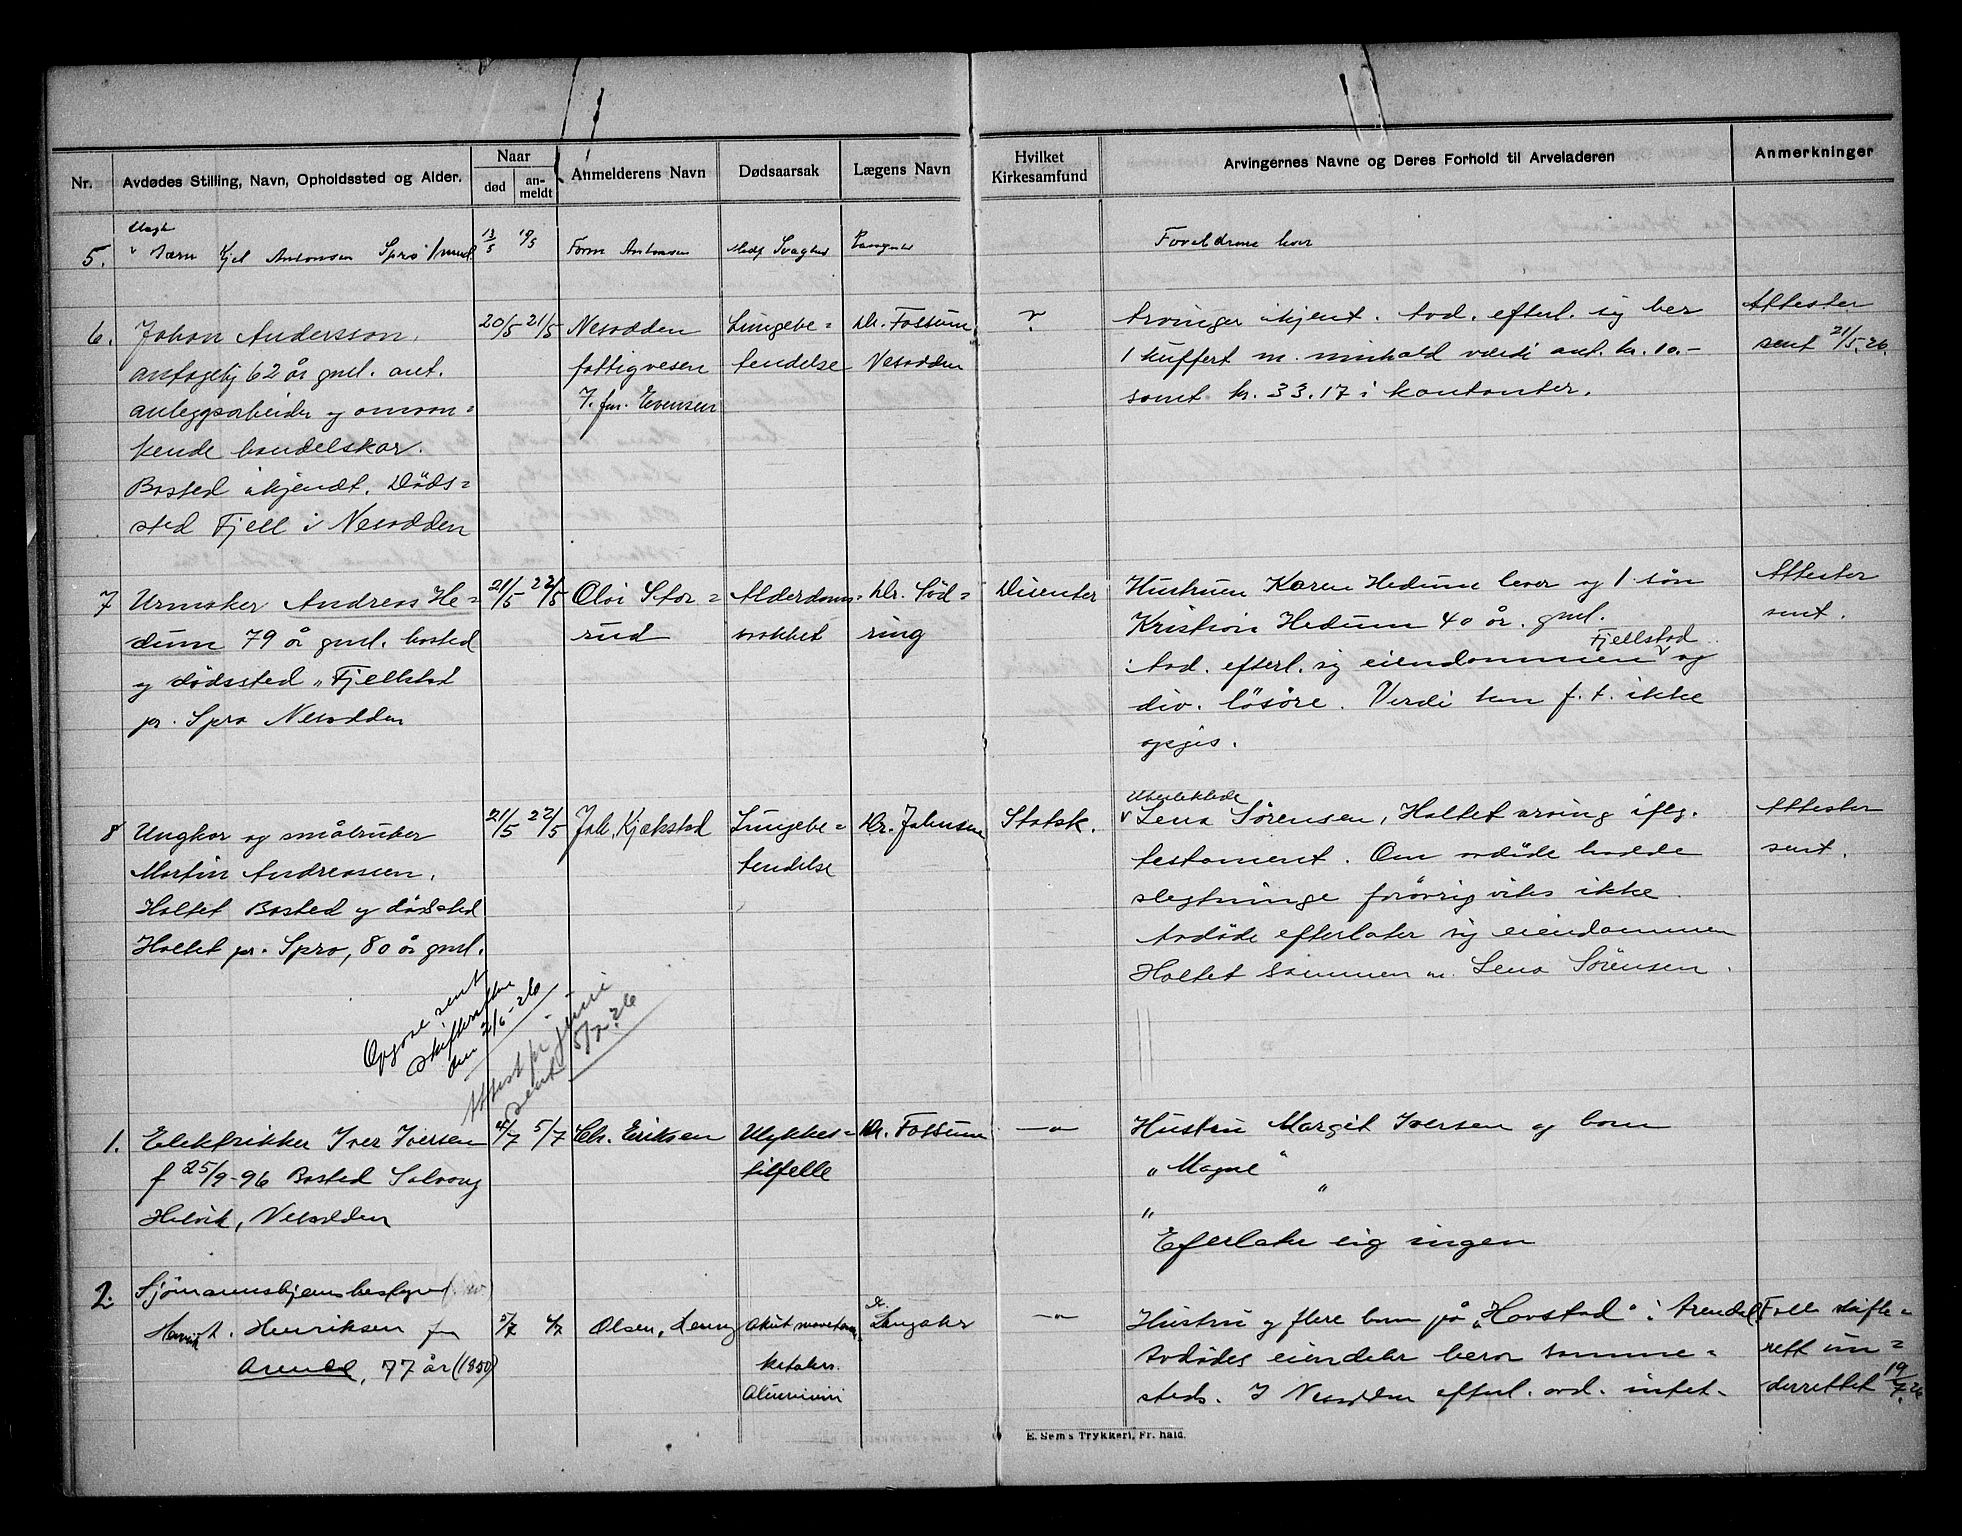 Nr.
Avdødes Stilling, Navn, Opholdssted og Alder.
Naar
død
an-
meldt
Anmelderens Navn
Dødsaarsak
Lægens Navn
Hvilket
Kirkesamfund
Arvingernes Navne og Deres Forhold til Arveladeren
Anmerkninger
5.
Kjel Antonsen Spro
13/5
19/5
Antonsen
Medf Svaghed
Forældrene lever
6.
Johan Andersson,
antagelig 62 år gml. ant.
anleggsarbeider og omvan=
kende handelskar.
Bosted ukjendt. Døds=
sted Fjell i Nesodden
20/5
21/5
Nesodden
fattigvesen
Evensen
Lungebe=
tendelse
Dr. Fossum
Nesodden
?
Arvinger ukjent. Avd. efterl. sig her
1 kuffert m. innhold værdi ant. kr. 10.-
samt kr. 33.17 i kontanter.
Attester
sent 21/5.26.
7
Urmaker Andreas He=
dum 79 år gml. bosted
og dødssted „Fjellstad
pr. Spro Nesodden
21/5
22/5
Olai Stor=
rud
Alderdoms=
svakhet
Dr. Söd=
ring
Disenter
Hustruen Karen Hedum lever og 1 søn
Kristian Hedum 40 år. gml.
Avd. efterl. sig eiendommen Fjellstad og
div. løsøre. Verdi kan f. t. ikke
opgis.
Attester
sent.
8
Ungkar og småbruker
Martin Andreassen,
Holtet Bosted og dødssted
Holtet pr. Spro, 80 år gml.
21/5
22/5
Joh. Kjækstad
Lungebe=
tendelse
Dr. Johnsen
Statsk.
Lena Sørensen, Holtet arving iflg.
testament. Om avdøde hadde
slegtninge forøvrig vites ikke.
Avdøde efterlater sig eiendommen
Holtet sammen m. Lena Sørensen.
Attester
sent.
Opgave sent
skifteretten
den 2/6-26
Attest pr juni
sent 5/7 26
1.
Elektrikker Iver Iversen
f 25/9-96 Bosted Solvang
Helvik, Nesodden
4/7
5/7
Chr. Eriksen
Ulykkes=
tilfelle
Dr. Fossum
—„—
Hustru Margit Iversen og barn
„ Magne „
„ „
Efterlate sig ingen
2.
Sjømannshjemsbestyrer
Henriksen fra
Arendal, 77 år (1850)
5/7
6/7
Olsen,
Akut
Dr. Langaker
—„—
Hustru og flere barn på „Havstad" i Arendal
Avdødes eiendeler beror samme=
steds. I Nesodden efterl. avd. intet.
Follo skifte=
rett un=
derrettet 19/7.26
E. Sem's Trykkeri, Fr. hald.